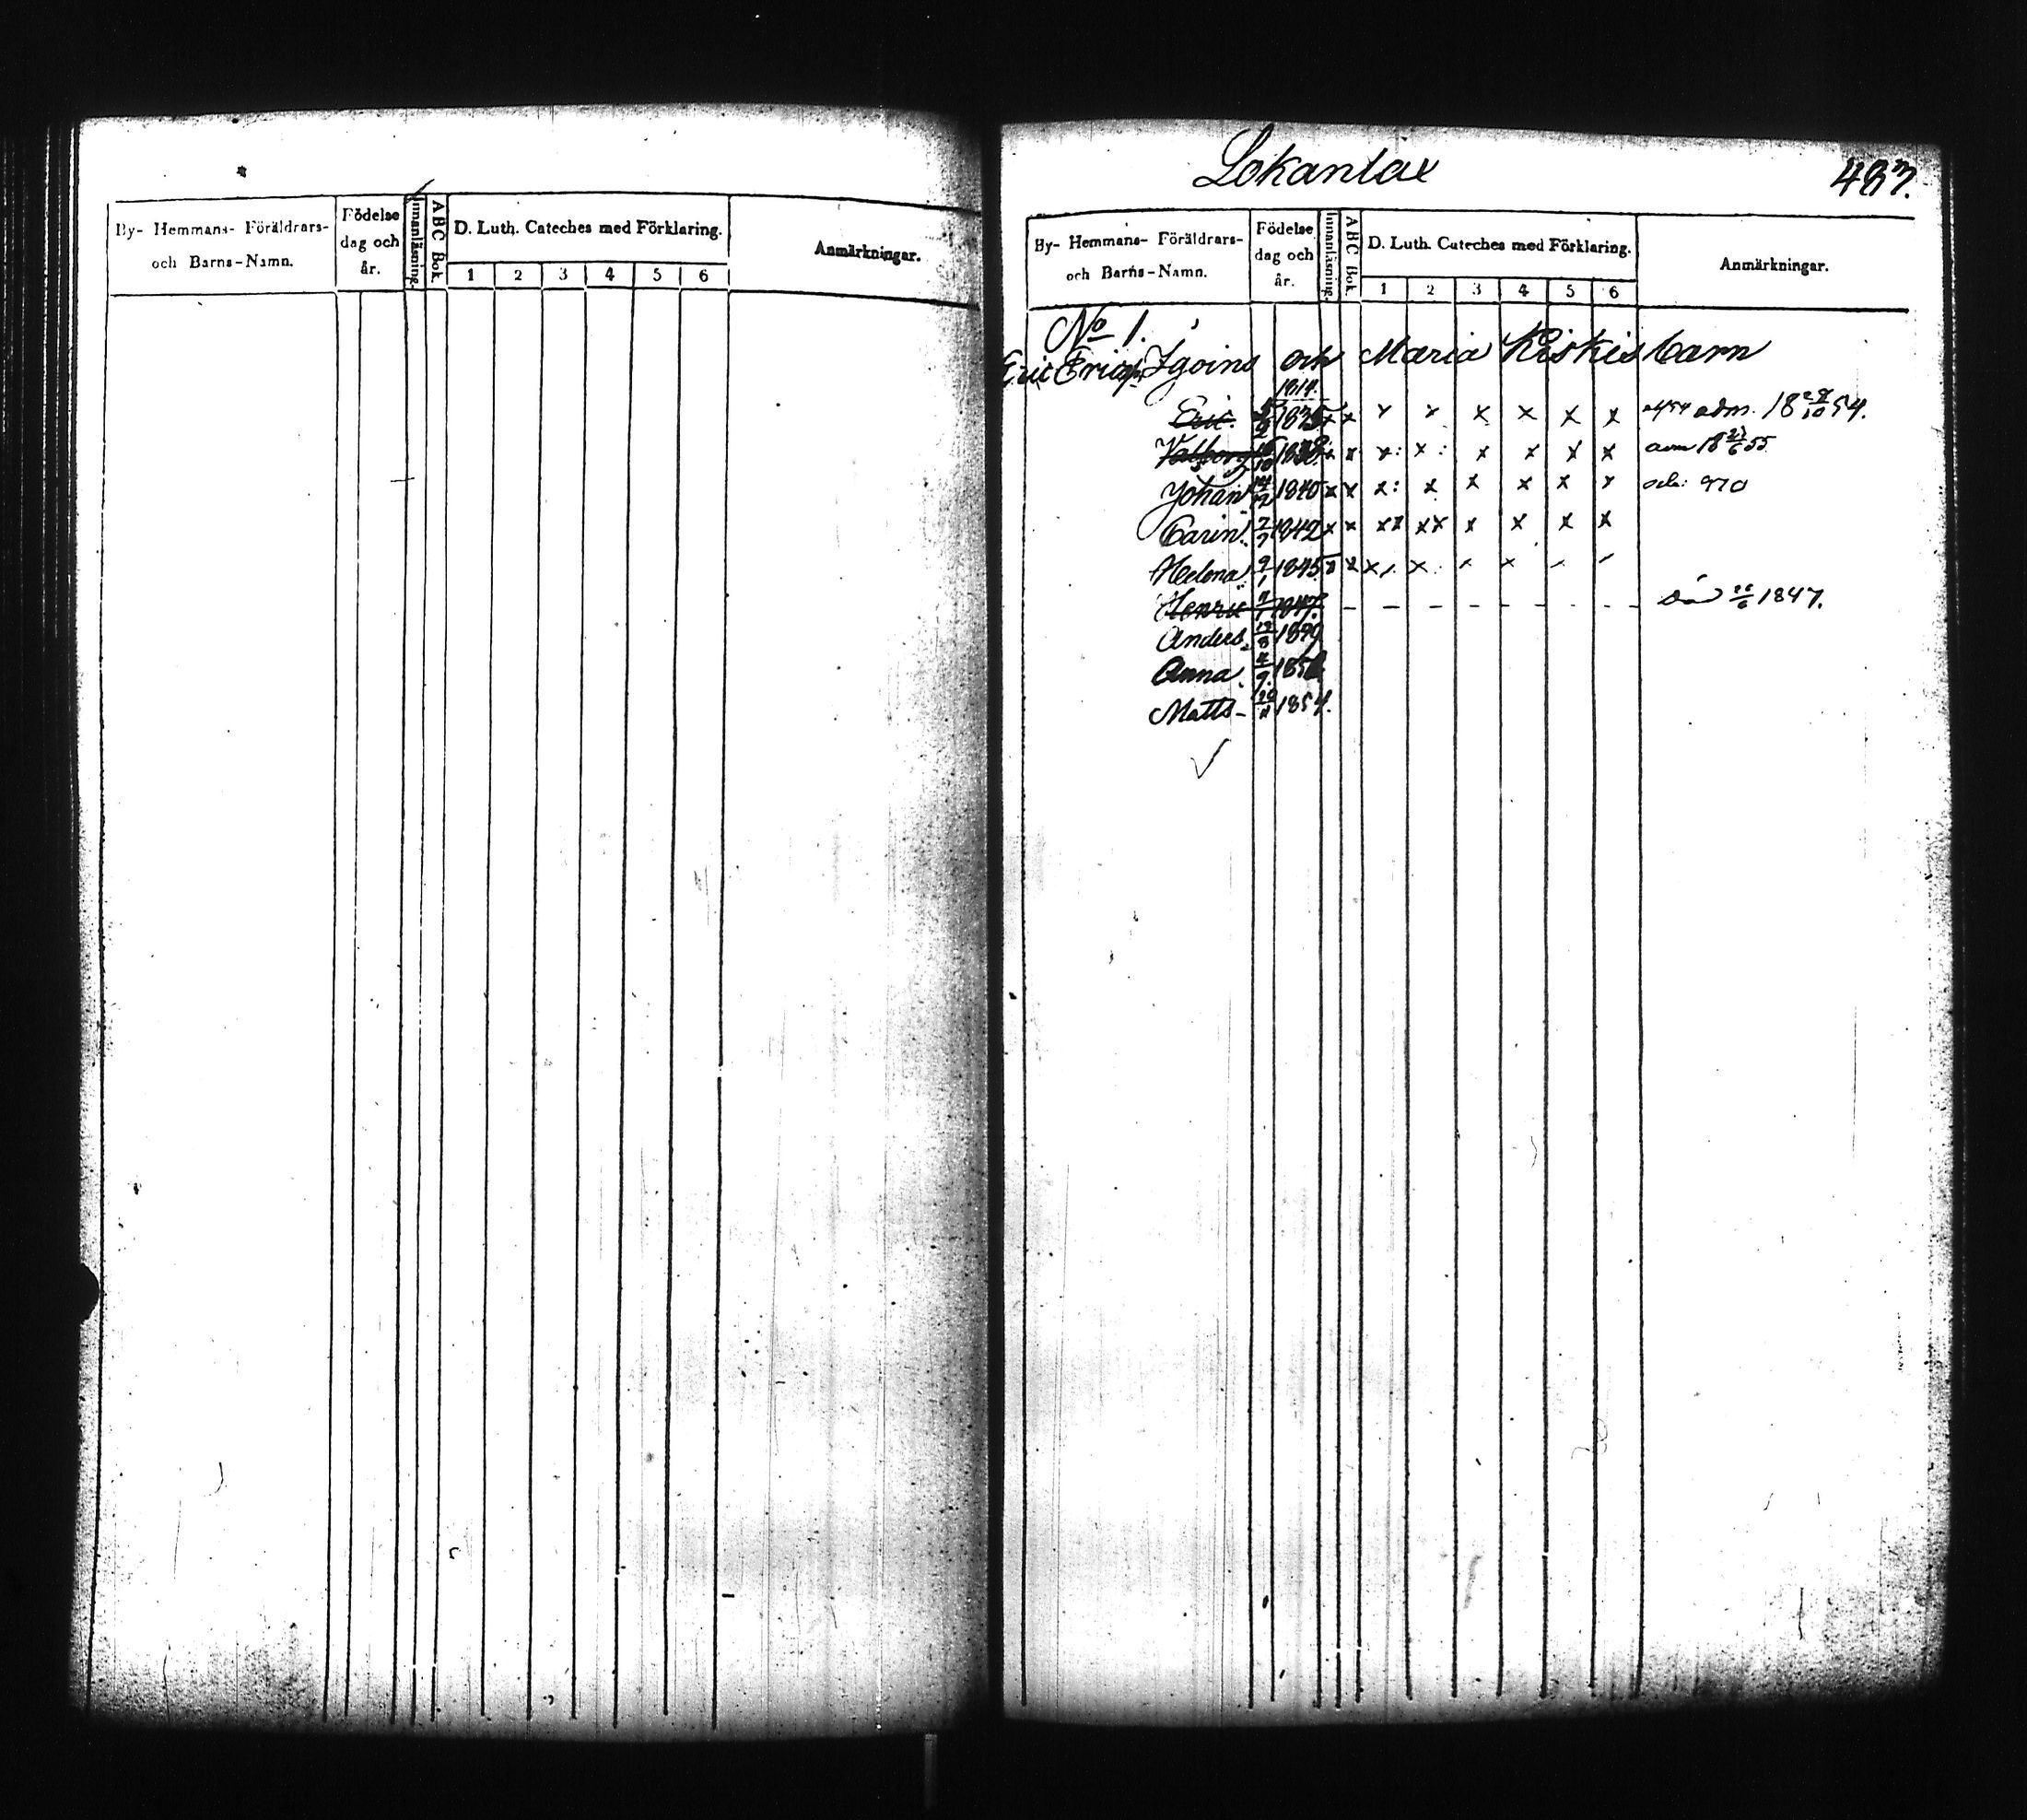 By- Hemmans- Föräldrars-
och Barns-Namn.
Födelse
dag och
år.
Innanläsning.
ABC Bok.
D. Luth. Cateches med Förklaring.
1 2 3 4 5 6
Anmärkningar.
Lokantax
487.
By- Hemmans- Föräldrars-
och Barns-Namn.
Födelse
dag och
år.
Innanläsning.
ABC Bok.
D. Luth. Cateches med Förklaring.
1 2 3 4 5 6
Anmärkningar.
No 1.
Eric Ericss. och Maria barn
1814.
Eric. 1835 x x x x x x x x adm. 18 54.
Valborg x x x: x: x x x x adm 18 55
Johan 1840 x x x: x x x x x 970
Carin. 1842 x x xx xx x x x x
Helena 9/1 1845
Henric 11/1 1847. - - - - - - - - 1847.
Anders
Anna. 185
Matts- 1854.